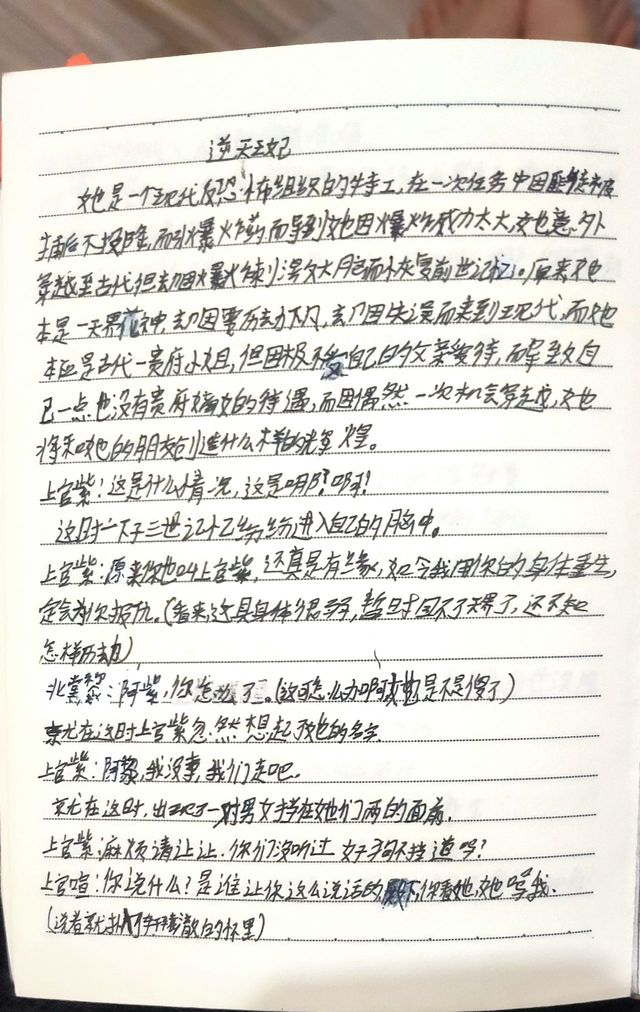 逆天王妃
她是一个现代反恐怖组织的特工,在一次任务中因
捕后不投降,而引爆火药而导致她因爆炸威力太大,她意外
穿越至古代但却因爆火刺激大脑而恢复前世记忆。原来她
本是一天界花神,却因要历劫下凡,却因失误而来到现代,而她
本应是古代一贵府小姐,但因极不受自己的父亲爱待,而导致自
己一点也没有贵府嫡女的待遇,而因偶然一次机会穿越成,她
将和她的朋友创造什么样的光辉煌。
上官紫:这是什么情况,这是哪?啊!
这时一下子三世记忆纷纷进入自己的脑中。
上官紫:原来你也叫上官紫,还真是有缘,如今我用你的身体重生,
定会为你报仇。(看来这具身体很弱,暂时回不了天界了,还不知
怎样历劫)
北棠黎:阿紫,你怎么了。(这可怎么办啊是不是傻了)
就在这时上官紫忽然想起了她的名字
上官紫:阿黎,我没事,我们走吧。
就在这时,出现了一对男女挡在她们两的面前.
上官紫:麻烦请让让.你们没听过好狗不挡道吗?
上官喧:你说什么?是谁让你这么说话的,殿下,你看她,她骂我.
(说着就扑入了轩澈的怀里)